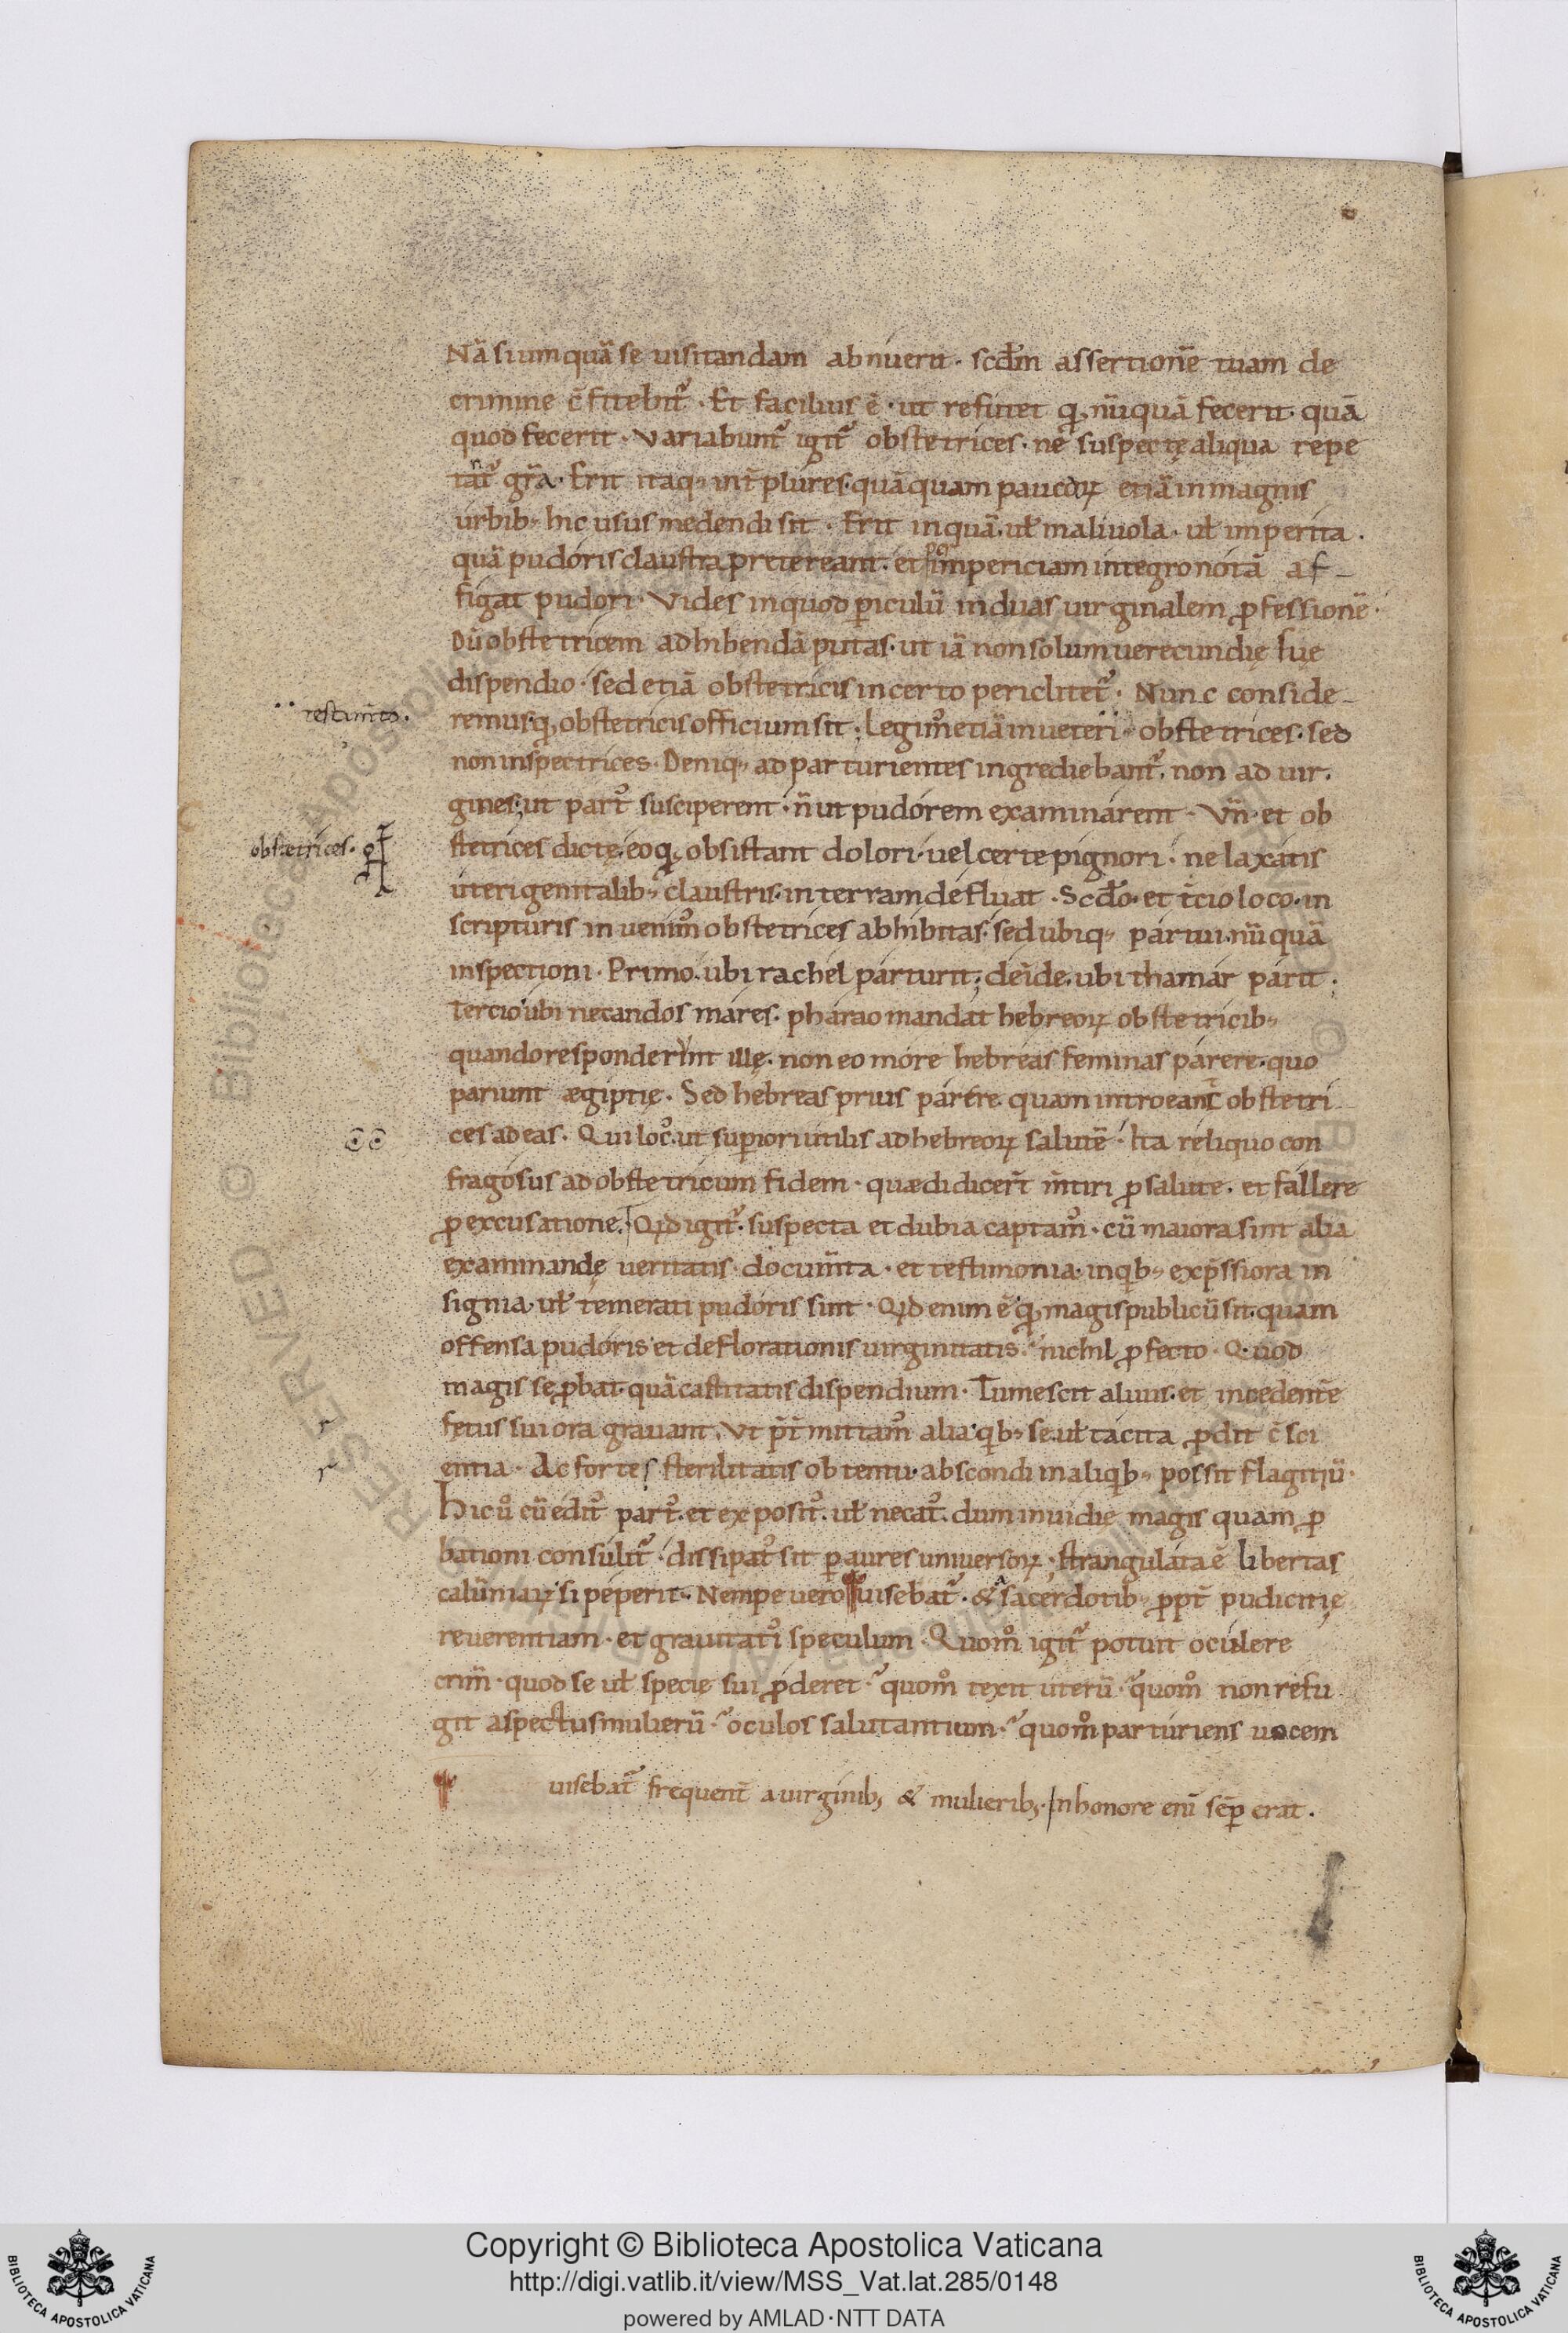 Nā si umquā se uisitandam abnuerit · scd̄m assertionē tuam de
crimine c̄fitebit᷑ · Et facilius ē · ut refutet q̨ nūquā fecerit · quā
quod fecerit · Variabunt᷑ igit᷑ obstetrices · ne suspectę aliqua repe
tant᷑ gr̄a · Erit itaq; int̄ plures · quāquam paucoꝝ etiā in magnis
urbib; hic usus medendi sit · Erit inquā · ul̄ maliuola · ul̄ imperita ·
quā pudoris claustra pretereant · et impericiam integro notā af-
figat pudori · Vides in quod ꝑiculū inducas uirginalem ꝓfessionē ·
Dū obstetricem adhibendā putas · ut iā non solum uerecundię suę
dispendio · sed etiā obstetricis incerto periclitet᷑ · Nunc conside-
testam̄to ·
remus q̨ obstetricis officium sit · Legim᷒ etiā in ueteri obstetrices · sed
non inspectrices · Deniq; ad parturientes ingrediebant᷑ · non ad uir
gines · ut part᷒ susciperent · n̄ ut pudorem examinarent · Vn̄ et ob
obstetrices ·
stetrices dictę · eo q̨ obsistant dolori · uel certe pignori · ne laxatis
uteri genitalib; claustris · in terram defluat · Scd̄o · et t̄cio loco · in
scripturis inuenim᷒ obstetrices abhibitas · sed ubiq; partui · nūquā
inspectioni · Primo · ubi rachel parturit ; deīde · ubi thamar parit ;
Tercio ubi necandos mares · pharao mandat hebreoꝝ obstetricib;
quando responderunt illę · non eo more hebreas feminas parere · quo
pariunt ægiptię · Sed hebreas prius parere · quam introeant obstetri-
ces ad eas · Qui loc᷒ · ut superiori utilis ad hebreoꝝ salutē · Ita reliquo con
fragosus ad obstetricum fidem · quæ didicer̄t m̄tiri ꝓ salute · et fallere
ꝓ excusatione · Qid igit᷑ · suspecta et dubia captam᷒ · cū maiora sint alia
examinandę ueritatis docum̄ta · et testimonia · in qib; exp̄ssiora in
signia · ul̄ temerati pudoris sint · Qid enim ē q̨ magis publicū sit · quam
offensa pudoris et deflorationis uirginitatis ? nichil ꝓfecto · Quod
magis se ꝓbat · quā castitatis dispendium · Tumescit aluus · et incedentē
fetus sui ora grauant · Vt p̄t̄mittam᷒ alia · qib; se ul̄ tacita ꝓdit c̄sci
entia · Ac fortes sterilitatis obtentu · abscondi in aliqib; possit flagitiū ·
Hic ů cū edit᷒ part᷒ · et exposit᷒ · ul̄ necat᷒ · dum inuidię magis quam ꝓ
bationi consulit᷑ · dissipat᷒ sit ꝑ aures uniuersoꝝ · strangulata ē libertas
calūniaꝝ si peperit · Nempe uero uisebat᷑ · & a sacerdotib; ꝓpt̄ pudicitię
reuerentiam · et grauitatis speculum · Quom̊ igit᷑ potuit oculere
crim̄ · quod se ul̄ specię sui ꝓderet ? quom̊ texit uterū ? quom̊ non refu
git aspectus mulierū ? oculos salutantium ? quom̊ parturiens uocem
uisebat᷑ frequent̄ a uirginib; & mulierib; · In honore eni᷒ sēꝑ erat ·
Copyright © Biblioteca Apostolica Vaticana
http://digi.vatlib.it/view/MSS_Vat.lat.285/0148
powered by AMLAD·NTT DATA
BIBLIOTECA APOSTOLICA VATICANA
BIBLIOTECA APOSTOLICA VATICANA